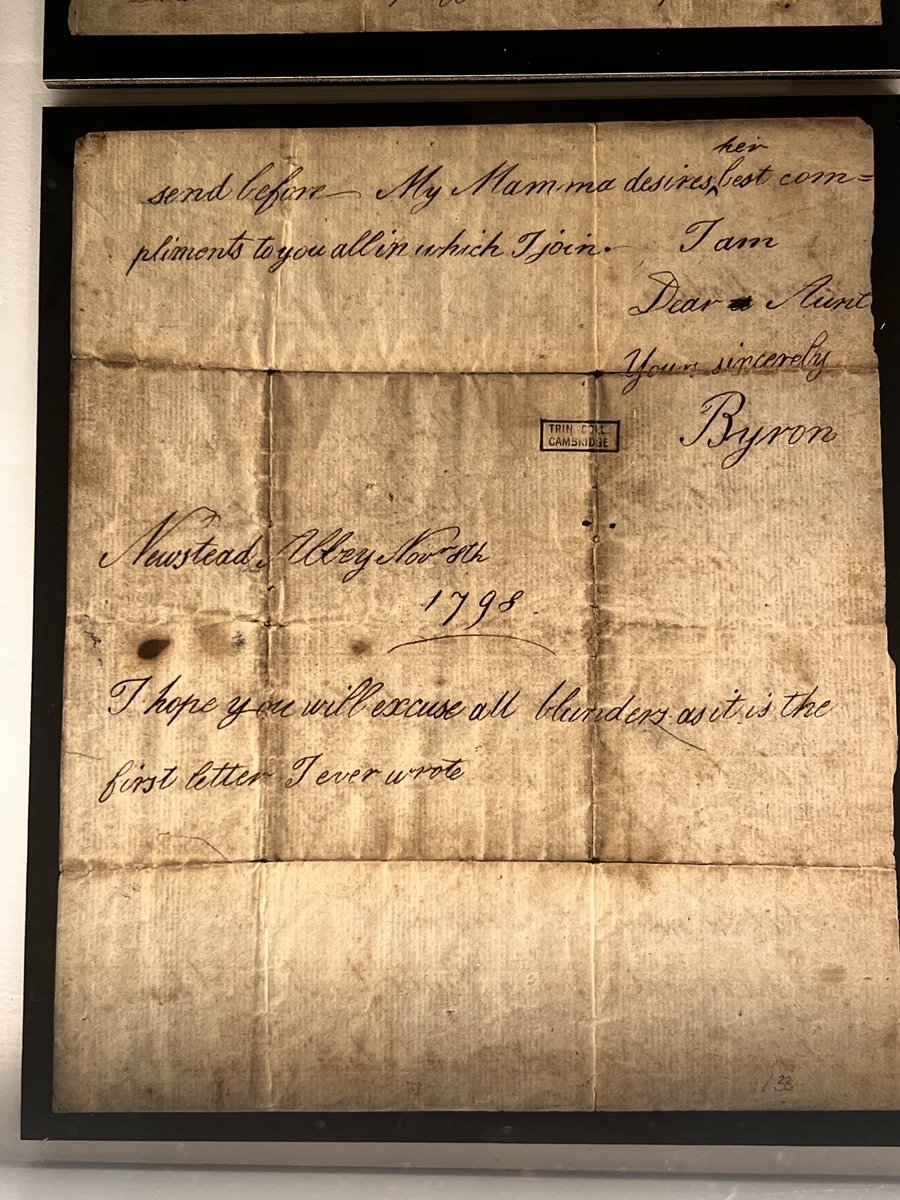 her
send before — My Mamma desires ‸ best com=
pliments to you all in which I join. — I am
Dear Aunt
Yours sincerely
Byron
TRIN. COLL.
CAMBRIDGE
Newstead Abbey Novr 8th
1798.
I hope you will excuse all blunders as it is the
first letter I ever wrote